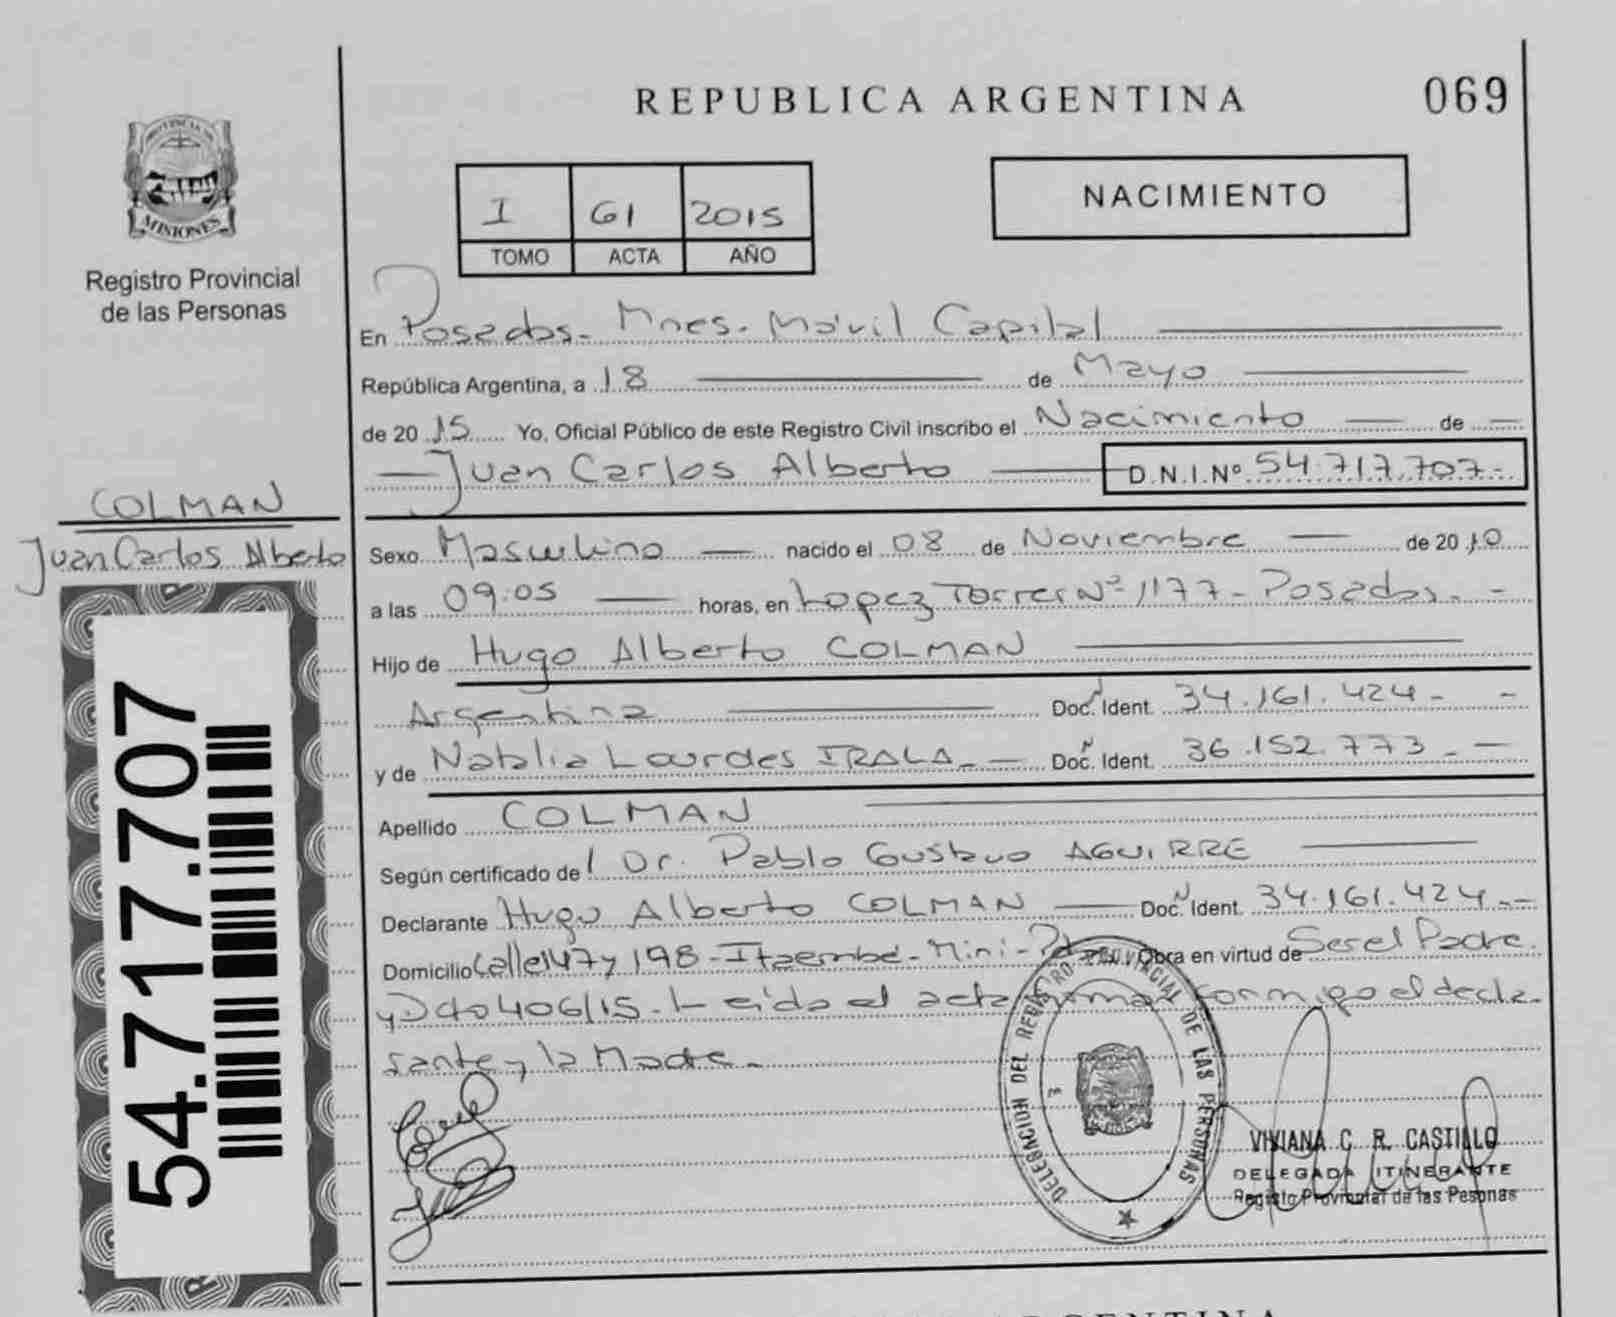 REPUBLICA ARGENTINA
069
PROVINCIA DE
MISIONES
Registro Provincial
de las Personas
I 61 2015
TOMO ACTA AÑO
NACIMIENTO
En Posadas - Mnes. Móvil Capital
República Argentina, a 18 de Mayo
de 2015 Yo, Oficial Público de este Registro Civil inscribo el Nacimiento de
Juan Carlos Alberto D.N.I.Nº 54.717.707.-
COLMAN
Juan Carlos Alberto
54.717.707
Sexo Masculino nacido el 08 de Noviembre de 2010
a las 09:05 horas, en Lopez Torres Nº 1177 - Posadas. -
Hijo de Hugo Alberto COLMAN
Argentina Doc. Ident. 34.161.424 - -
y de Natalia Lourdes IRALA - Doc. Ident. 36.152.773 . -
Apellido COLMAN
Según certificado de l Dr. Pablo Gustavo AGUIRRE
Declarante Hugo Alberto COLMAN Doc. Ident. 34.161.424.-
Domicilio Calle 147 y 198 - Itaembé - Mini - Obra en virtud de Ser el Padre.
y Dcto 406/15. Leída el acta firman conmigo el decla
rante y la Madre -
DELEGACION DEL REGISTRO PROVINCIAL DE LAS PERSONAS
VIVIANA C. R. CASTILLO
DELEGADA ITINERANTE
Registo Provincial de las Pesonas
ARGENTINA